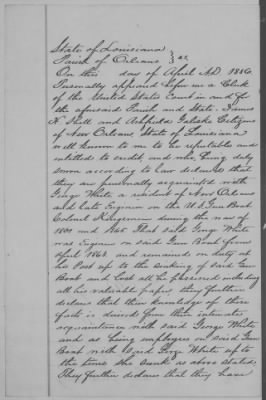 State of Louisiana
Parish of Orleans } SS.
On this day of April AD 1886
Personally appeared before me a Clerk
of the United States Court in and for
the aforesaid Parish and State. James
H. and Citizens
of New Orleans, State of Louisiana
well known to me to be reputable and
entitled to credit and who, being duly
sworn according to law declares that
they are personally acquainted with
George White a resident of New Orleans
and late Engineer on the U.S. Gun Boat
Colonel Kinsman during the war of
1861 and 1865. That said George White
was Engineer on said Gun Boat from
April 1862 and remained on duty at
his Post up to the sinking of said Gun
Boat and lost all he possessed including
all his valuable papers they further
declare that their knowledge of these
facts is derived from their intimate
acquaintance with said George White
and as being employees on said Gun
Boat with said George White up to
the time she sunk as above stated.
They further declare that they have